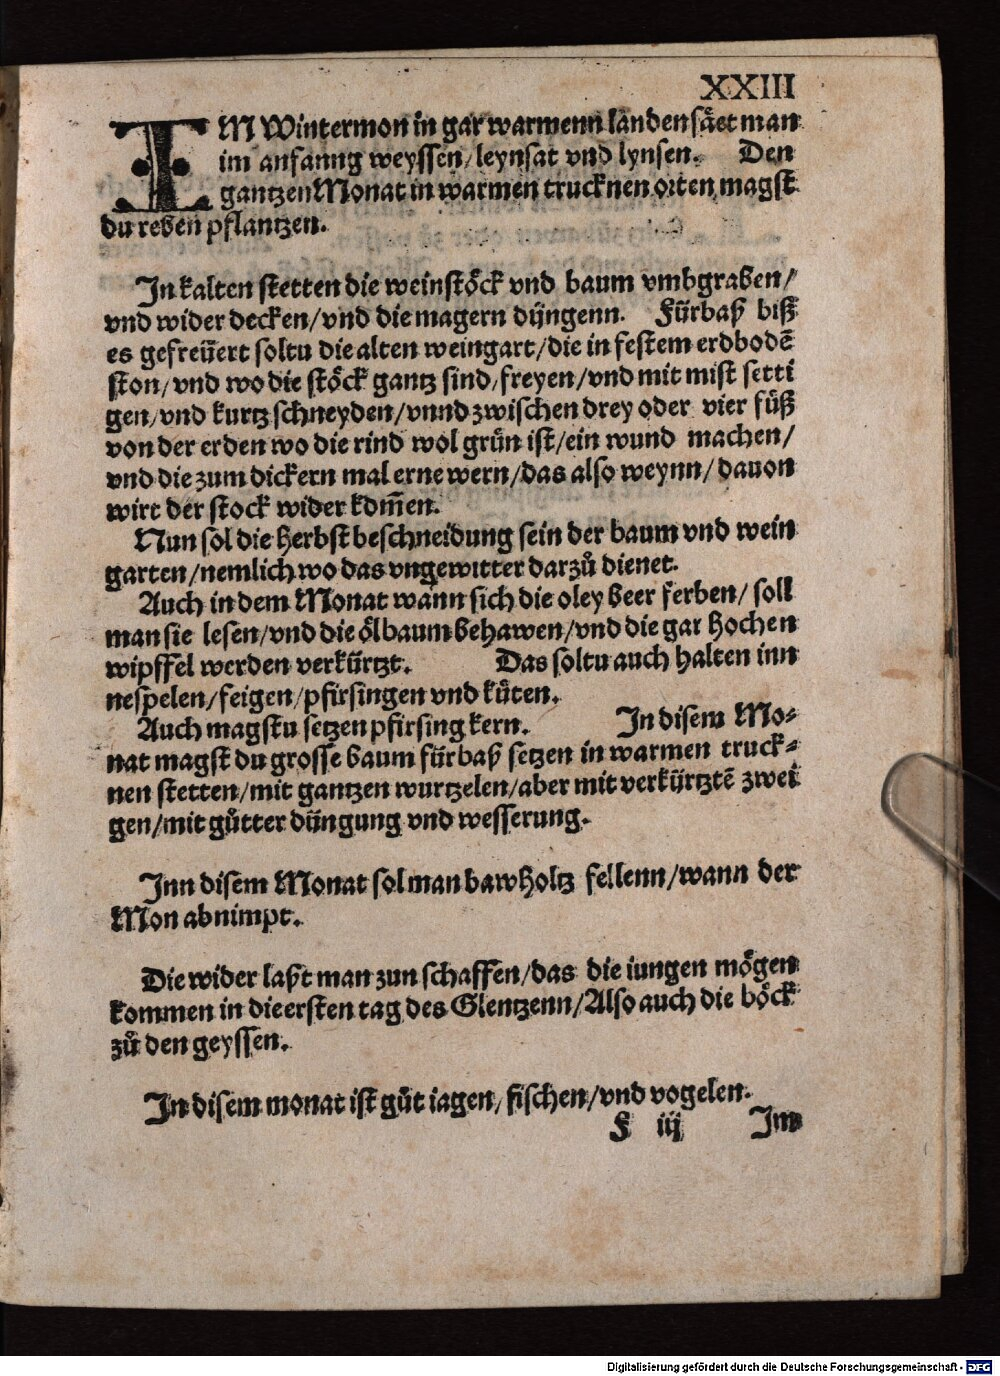 XXIII
IM Wintermon in gar warmenn landen säet man
im anfanng weyssen/leynsat vnd lynsen. Den
gantzen Monat in warmen trucknen orten magst
du reben pflantzen.
In kalten stetten die weinstöck vnd baum vmbgraben/
vnd wider decken/vnd die magern düngenn. Fürbaß biß
es gefreüert soltu die alten weingart/die in festem erdbodē
ston/vnd wo die stöck gantz sind/freyen/vnd mit mist setti
gen/vnd kurtz schneyden/vnnd zwischen drey oder vier füß
von der erden wo die rind wol grün ist/ein wund machen/
vnd die zum dickern mal ernewern/das also weynn/dauon
wirt der stock wider kom̄en.
Nun sol die herbstbeschneidung sein der baum vnd wein
garten/nemlich wo das vngewitter darzů dienet.
Auch in dem Monat wann sich die oley beer ferben/soll
man sie lesen/vnd die ölbaum behawen/vnd die gar hochen
wipffel werden verkürtzt. Das soltu auch halten inn
nespelen/feigen/pfirsingen vnd küten.
Auch magstu setzen pfirsing kern. In disem Mo⸗
nat magst du grosse baum fürbaß setzen in warmen truck⸗
nen stetten/mit gantzen wurtzelen/aber mit verkürtztē zwei
gen/mit gůtter düngung vnd wesserung.
Inn disem Monat sol man bawholtz fellenn/wann der
Mon abnimpt.
Die wider laßt man zun schaffen/das die iungen mögen
kommen in die ersten tag des Glentzenn/Also auch die böck
zů den geyssen.
In disem monat ist gůt iagen/fischen/vnd vogelen.
F iij Im
Digitalisierung gefördert durch die Deutsche Forschungsgemeinschaft - DFG